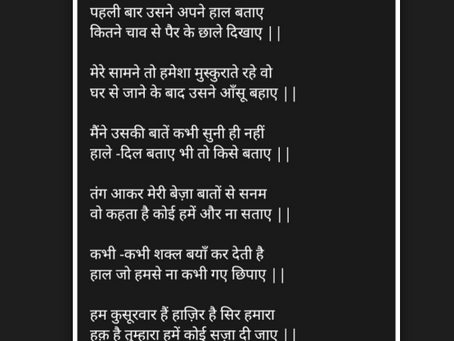 पहली बार उसने अपने हाल बताए
कितने चाव से पैर के छाले दिखाए ||
मेरे सामने तो हमेशा मुस्कुराते रहे वो
घर से जाने के बाद उसने आँसू बहाए ||
मैंने उसकी बातें कभी सुनी ही नहीं
हाले -दिल बताए भी तो किसे बताए ||
तंग आकर मेरी बेज़ा बातों से सनम
वो कहता है कोई हमें और ना सताए ||
कभी -कभी शक्ल बयाँ कर देती है
हाल जो हमसे ना कभी गए छिपाए ||
हम कुसूरवार हैं हाज़िर है सिर हमारा
हक़ है तुम्हारा हमें कोई सज़ा दी जाए ||